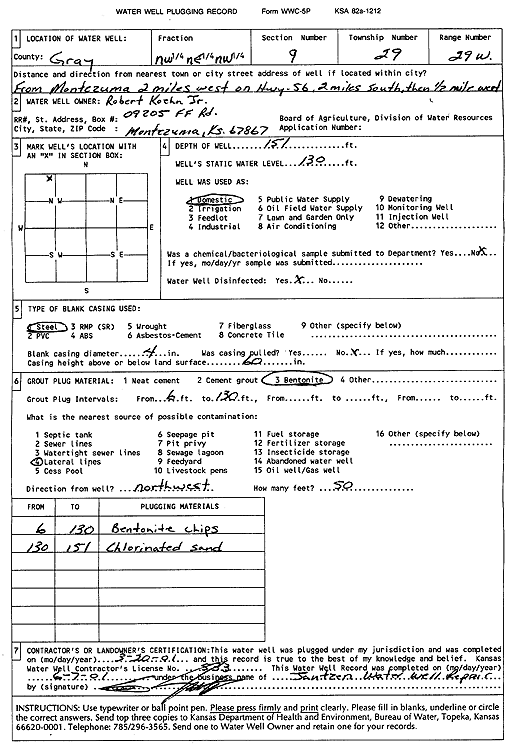 WATER WELL PLUGGING RECORD Form WWC-5P KSA 82a-1212
1 LOCATION OF WATER WELL: Fraction Section Number Township Number Range Number
County: Gray NW1/4 NE1/4 NW1/4 9 29 29 W.
Distance and direction from nearest town or city street address of well if located within city?
From Montezuma 2 miles west on Hwy. 56, 2 miles South, then 1/2 mile west
2 WATER WELL OWNER: Robert Koehn Jr.
RR#, St. Address, Box #: 09205 FF Rd. Board of Agriculture, Division of Water Resources
City, State, ZIP Code : Montezuma, Ks. 67867 Application Number:
3 MARK WELL'S LOCATION WITH AN "X" IN SECTION BOX:
N
X
N W N E
W E
S W S E
S
4 DEPTH OF WELL.....151.....ft.
WELL'S STATIC WATER LEVEL....130....ft.
WELL WAS USED AS:
1 Domestic 5 Public Water Supply 9 Dewatering
2 Irrigation 6 Oil Field Water Supply 10 Monitoring Well
3 Feedlot 7 Lawn and Garden Only 11 Injection Well
4 Industrial 8 Air Conditioning 12 Other...........
Was a chemical/bacteriological sample submitted to Department? Yes....No X
If yes, mo/day/yr sample was submitted..................
Water Well Disinfected: Yes.X... No......
5 TYPE OF BLANK CASING USED:
1 Steel 3 RMP (SR) 5 Wrought 7 Fiberglass 9 Other (specify below)
2 PVC 4 ABS 6 Asbestos-Cement 8 Concrete Tile ......................
Blank casing diameter.....4....in. Was casing pulled? Yes...... No.X.. If yes, how much..........
Casing height above or below land surface........60......in.
6 GROUT PLUG MATERIAL: 1 Neat cement 2 Cement grout 3 Bentonite 4 Other...............
Grout Plug Intervals: From..6.ft. to.130.ft., From......ft. to .....ft., From...... to......ft.
What is the nearest source of possible contamination:
1 Septic tank 6 Seepage pit 11 Fuel storage 16 Other (specify below)
2 Sewer lines 7 Pit privy 12 Fertilizer storage ......................
3 Watertight sewer lines 8 Sewage lagoon 13 Insecticide storage
4 Lateral lines 9 Feedyard 14 Abandoned water well
5 Cess Pool 10 Livestock pens 15 Oil well/Gas well
Direction from well? ...northwest...... How many feet? .50......
FROM TO PLUGGING MATERIALS
6 130 Bentonite chips
130 151 Chlorinated sand
7 CONTRACTOR'S OR LANDOWNER'S CERTIFICATION:This water well was plugged under my jurisdiction and was completed
on (mo/day/year)....3-20-01... and this record is true to the best of my knowledge and belief. Kansas
Water Well Contractor's License No. ..533........ This Water Well Record was completed on (mo/day/year)
....6-7-01........under the business name of ....Jantzen Water Well Repair
by (signature)
INSTRUCTIONS: Use typewriter or ball point pen. Please press firmly and print clearly. Please fill in blanks, underline or circle
the correct answers. Send top three copies to Kansas Department of Health and Environment, Bureau of Water, Topeka, Kansas
66620-0001. Telephone: 785/296-3565. Send one to Water Well Owner and retain one for your records.